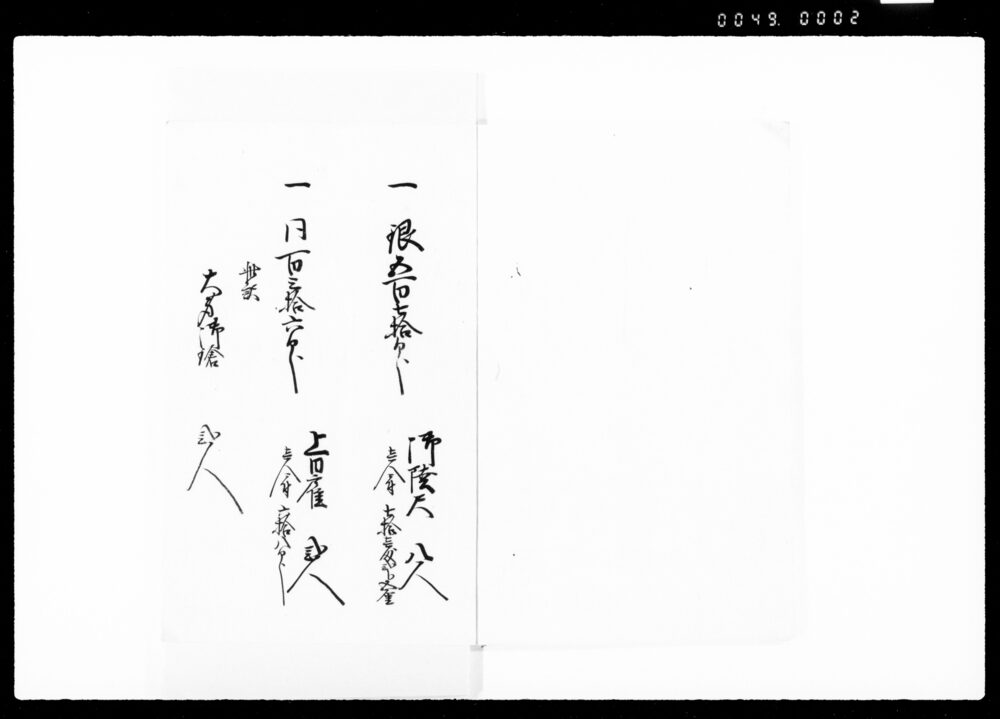 0049. 0002
一 銀五百七拾匁
御陸尺 八人
壱人ニ付 七拾壱匁弐分五厘
一 同百三拾六匁
上日雇 弐人
壱人ニ付 六拾八匁
此訳
大身御鎗 弐人